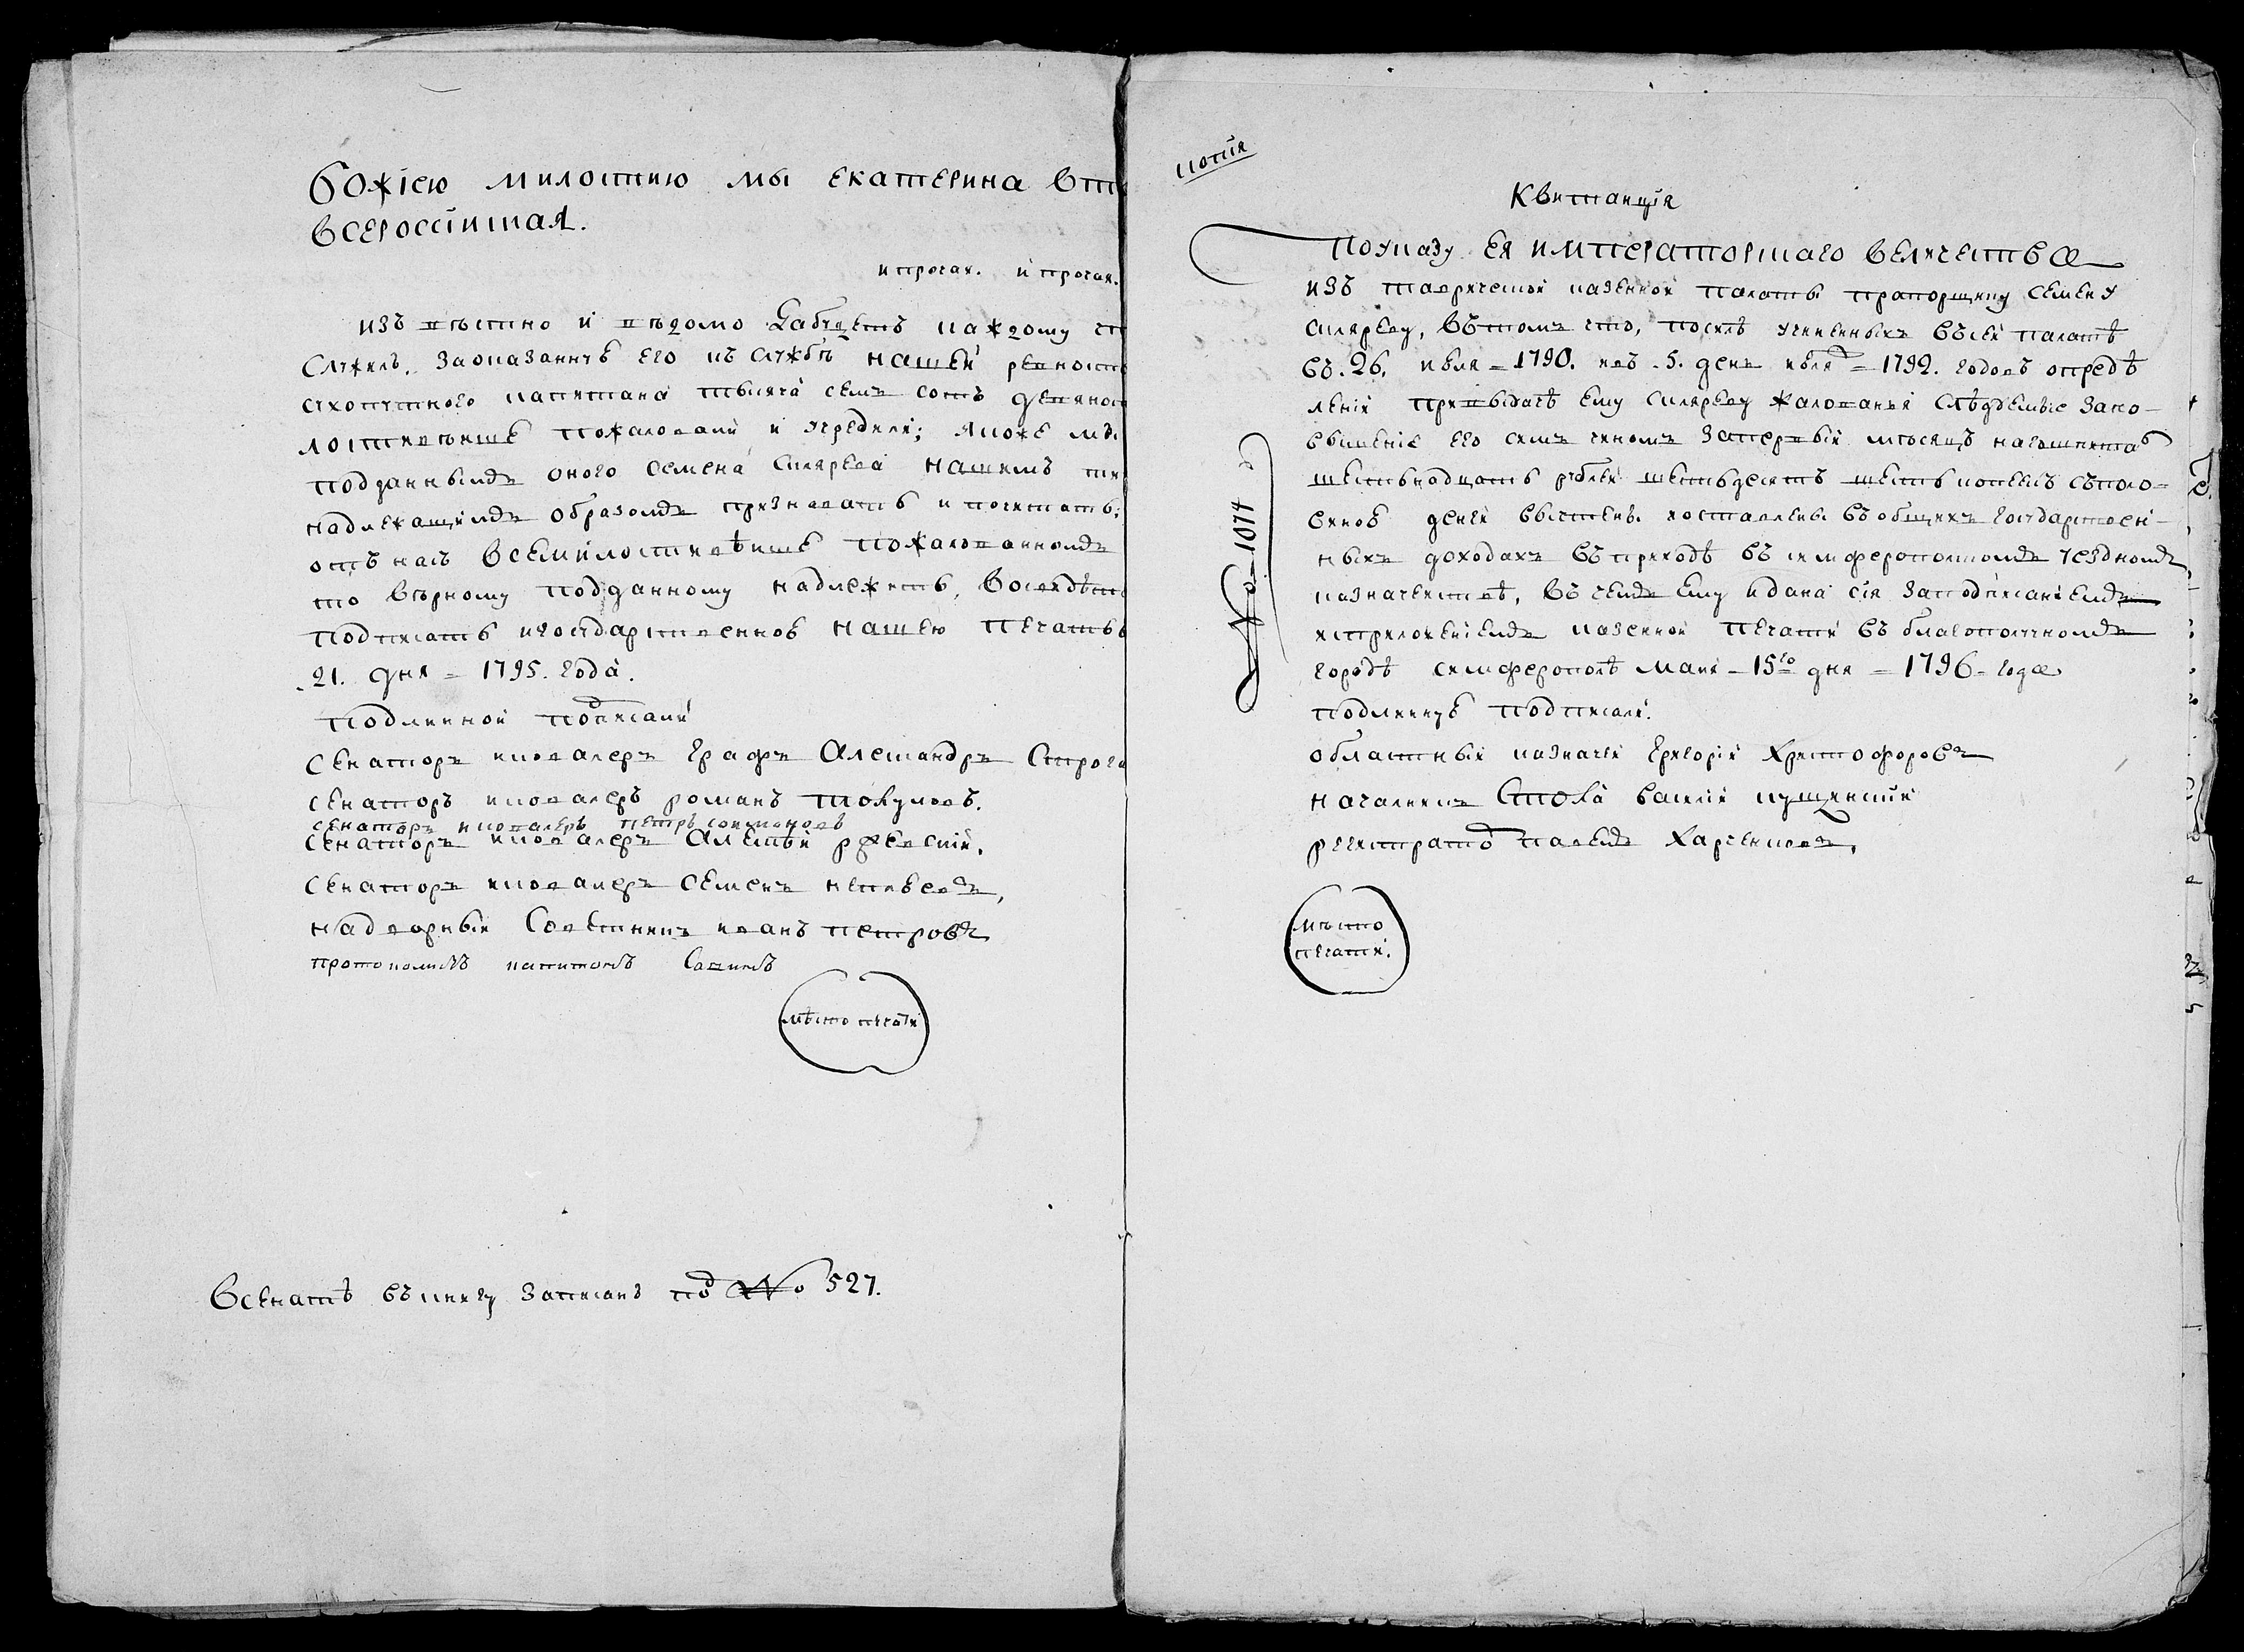 Божіею милостию мы екатерина вт
всероссійская.
и протчая. и протчая.
Извѣстно и вѣдомо да будетъ каждому
служилъ. За оказанную его къ службѣ нашей ревность
сухопутного капитана тысяча семь сотъ девяност
лостивѣйше пожаловали и учредили; якоже мы
подданнымъ оного семена склярева нашимъ
надлежащимъ образомъ признавать и почитать;
отъ насъ всемилостивѣйше пожалованномъ
то вѣрному подданному надлежитъ. Во свидѣте
подписать и государственною нашею печатью
21. дня = 1795. года.
Подлинной подписали
сенаторъ и кавалеръ графъ Александръ Строга
сенаторъ и кавалеръ романъ
сенаторъ и кавалеръ петръ соимоновъ
сенаторъ и кавалеръ Алексѣй ржевскій.
сенаторъ и кавалеръ семенъ неплюевъ,
надворный Советникъ иванъ петровъ
протоколистъ капитонъ
мѣсто печати
В сенатѣ въ книгу записанъ под № 527.
копія
Квитанція
По указу ея императорскаго величества
изъ таврической казенной палаты прапорщику семену
скляреву, въ томъ что, после учиненныхъ въ сей палатѣ
въ. 26. июля = 1790. и въ. 5. день июля = 1792. годовъ опредѣ
леній при выдаче ему скляреву жалованья слѣдуемые за по-
вышеніе его симъ чиномъ за первый мѣсяцъ на гошпиталь
шестьнадцать рублей шестьдесятъ шесть копеекъ съ поло-
виною денги вычтены. и оставлены въ общихъ государствен-
ныхъ доходахъ въ приходѣ въ симферопольскомъ уездномъ
казначействѣ, въ чемъ ему и дана сія за подписаніемъ
и приложеніемъ казенной печати въ благополучномъ
городѣ симферополѣ маия = 15го дня = 1796 = года
подлинную подписали.
областный казначей Григорій Христофоровъ
началникъ Стола василій пущинскій
регистратор павелъ Харченковъ.
мѣсто
печати.
№ 1074